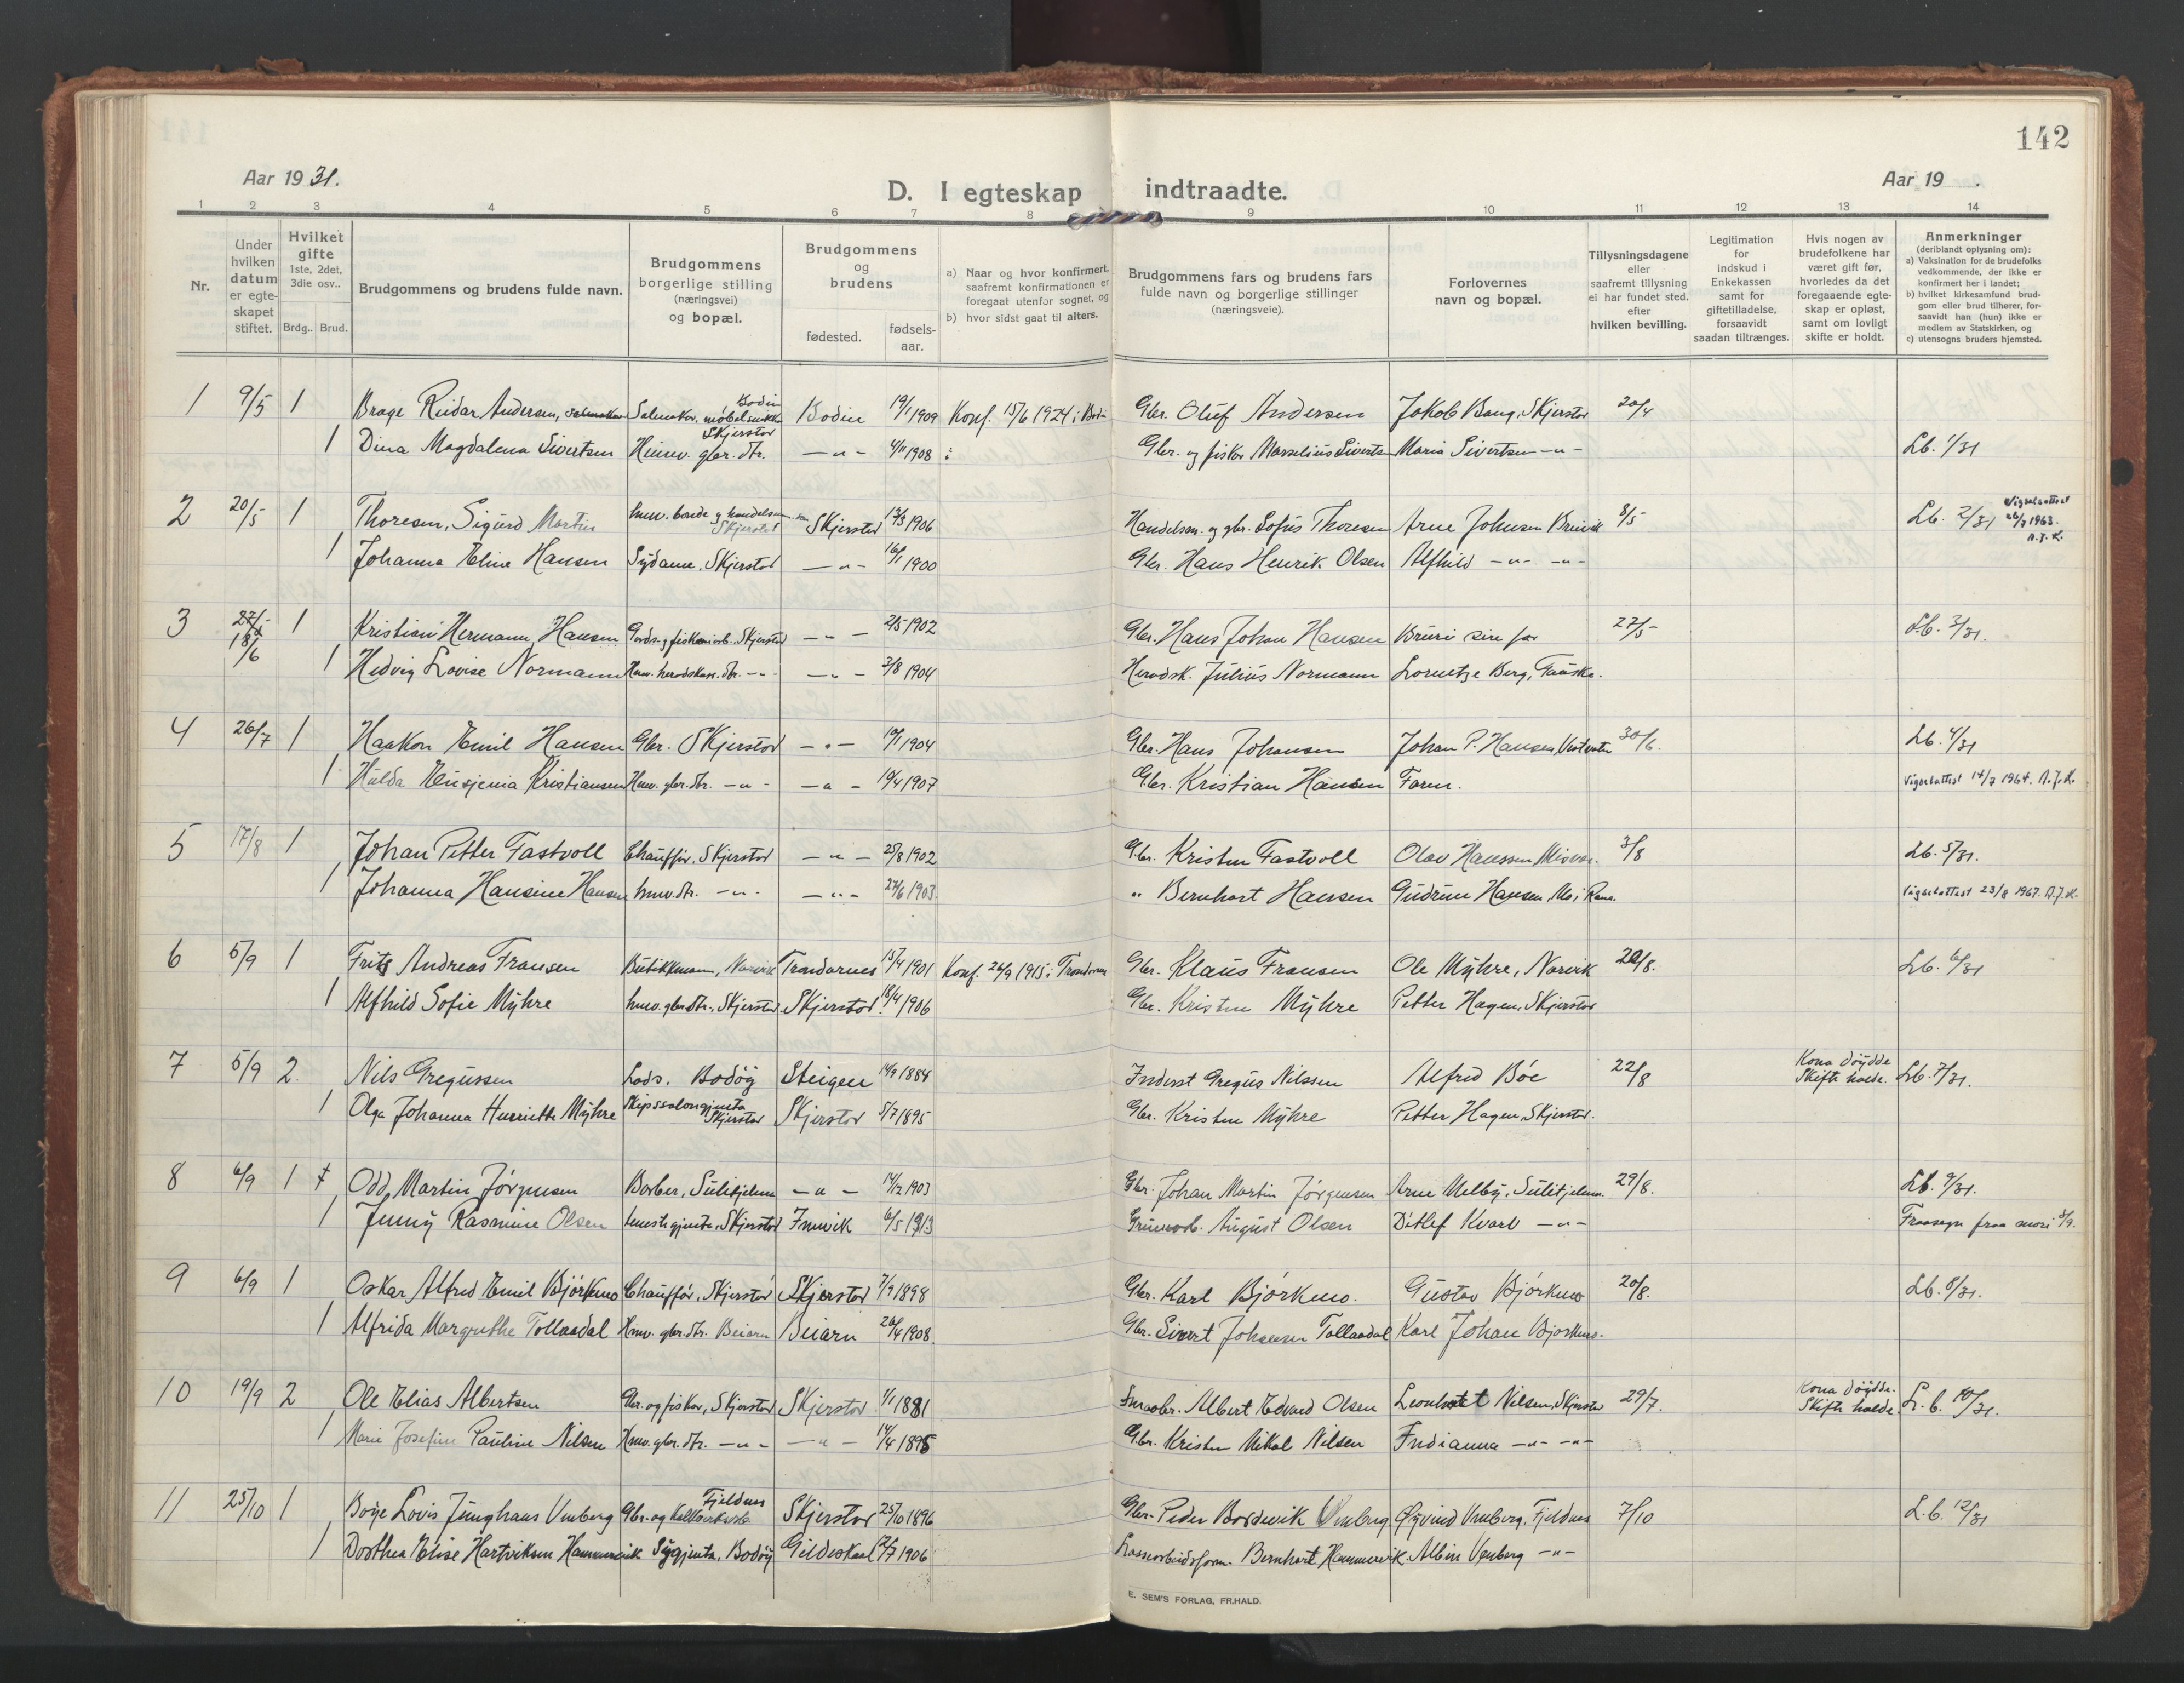 142
Aar 19 31.
D. I egteskap indtraadte.
Aar 19 .
1 2 3 4 5 6 7 8 9 10 11 12 13 14
Nr.
Under hvilken datum er egte-skapet stiftet.
Hvilket gifte 1ste, 2det, 3die osv..
Brdg.. Brud.
Brudgommens og brudens fulde navn.
Brudgommens borgerlige stilling (næringsvei) og bopæl.
Brudgommens og brudens
fødested.
fødsels-aar.
a) Naar og hvor konfirmert, saafremt konfirmationen er foregaat utenfor sognet, og
b) hvor sidst gaat til alters.
Brudgommens fars og brudens fars fulde navn og borgerlige stillinger (næringsveie).
Forlovernes navn og bopæl.
Tillysningsdagene eller saafremt tillysning ei har fundet sted. efter hvilken bevilling.
Legitimation for indskud i Enkekassen samt for giftetilladelse, forsaavidt saadan tiltrænges.
Hvis nogen av brudefolkene har været gift før, hvorledes da det foregaaende egte-skap er opløst, samt om lovligt skifte er holdt.
Anmerkninger (deriblandt oplysning om):
a) Vaksination for de brudefolks vedkommende, der ikke er konfirmert her i landet;
b) hvilket kirkesamfund brud-gom eller brud tilhører, for-saavidt han (hun) ikke er medlem av Statskirken, og
c) utensogns bruders hjemsted.
1 9/5 1 Brage Reidar Andersen, Salmaker, møbelsnikker Bodin Bodin 19/1 1909 Konf. 15/6 1924 i Bodin Gbr. Oluf Andersen Jakob Bang, Skjerstad 20/4
1 Dina Magdalena Sivertsen Heimv. gbr. dtr. Skjerstad —"— 4/11 1908 Gbr. og fisker Marselius Sivertsen Maria Sivertsen —"— Lb. 1/31
2 20/5 1 Thoresen, Sigurd Martin hmv. bonde og handelsm. søn Skjerstad Skjerstad 13/3 1906 Handelsm. og gbr. Sofus Thoresen Arne Johnsen Breivik 8/5 Lb. 2/31 Vigselsattest 26/3 1963. A.J.K.
1 Johanna Eline Hansen Sydame, Skjerstad —"— 16/1 1900 Gbr. Hans Henrik Olsen Alfhild —"— —"—
3 27/5 18/6 1 Kristian Hermann Hansen Gards- og fiskeriarb. Skjerstad —"— 2/5 1902 Gbr. Hans Johan Hansen Bruri sin far 27/5 Lb. 3/31.
1 Hedvig Lovise Normann Hmv. herodskass. dtr. —"— —"— 3/8 1904 Herodsk. Julius Normann Lorentze Berg, Fauske.
4 26/7 1 Haakon Emil Hansen Gbr. Skjerstad —"— 10/1 1904 Gbr. Hans Johansen Johan P. Hansen, 30/6. Lb. 4/31
1 Hulda Eusjenia Kristiansen Hmv. gbr. dtr. —"— —"— 10/4 1907 Gbr. Kristian Hansen Faren. Vigselattest 14/7 1964. A.J.K.
5 17/8 1 Johan Petter Fastvoll Chauffør, Skjerstad —"— 25/8 1902 Gbr. Kristen Fastvoll Olav Hanssen, Misvær. 3/8 Lb. 5/31.
1 Johanna Hansine Hansen hmv. dtr. —"— —"— 27/6 1903. " Bernhart Hansen Gudrun Hansen, Mo i Rana. Vigselattest 23/8 1967. A.J.K.
6 5/9 1 Frits Andreas Fransen Butikkmann, Narvik Trondarnes 15/4 1901 Konf. 26/9 1915 i Trondarnes Gbr. Klaus Fransen Ole Myhre, Narvik 20/8. Lb. 6/31
1 Alfhild Sofie Myhre hmv. gbr. dtr., Skjerstad Skjerstad 18/4 1906 Gbr. Kristen Myhre Petter Hagen, Skjerstad
7 5/9 2. Nils Gregussen Lods. Bodøy Steigen 14/9 1884 Inderst Gregus Nilssen Alfred Bøe 22/8 Kona døydde Skifte halde. Lb. 7/31.
1 Olga Johanna Henriette Myhre Skipssalongjenta Skjerstad Skjerstad 5/7 1895 Gbr. Kristen Myhre Petter Hagen, Skjerstad.
8 6/9 1 Odd Martin Jørgensen Barber, Sulitjelma —"— 14/12 1903 Gbr. Johan Martin Jørgensen Arne Melby, Sulitjelma. 29/8. Lb. 9/31.
1 Jenny Rasmine Olsen tenestegjente, Skjerstad 6/5 1913 Gruvearb. August Olsen Ditlef Kvarv —"— Fraasegn fraa mori 5/9.
9 6/9 1 Oskar Alfred Emil Bjørkmo Chauffør, Skjerstad Skjerstad 7/9 1898 Gbr. Karl Bjørkmo. Gustav Bjørkmo 20/8. Lb. 8/31.
1 Alfrida Margrethe Tollaadal Hmv. gbr. dtr. Beiarn Beiarn 26/4 1908. Gbr. Sivert Johansen Tollaadal Karl Johan Bjørkmo.
10 19/9 2 Ole Elias Albertsen Gbr. og fisker, Skjerstad Skjerstad 1/1 1881 Albert Edvard Olsen Leonhart Nilsen, Skjerstad 29/7. Kona døydde. Skifte halde. L.b. 10/31.
1 Marie Josefine Pauline Nilsen Hmv. gbr. dtr. —"— —"— 14/4 1895 Gbr. Kristen Nikol Nilsen Indianna —"— —"—
11 25/10 1 Børge Lovis Junghans Venberg Gbr. og Fjeldnes Skjerstad 25/10 1896 Gbr. Peder Bordevik Venberg Øyvind Venberg, Fjeldnes 7/10 L.b. 12/31
1 Dorthea Elise Hartviksen Hammervik Sygjenta, Bodøy Gildeskaal 12/7 1906 Bernhart Hammervik. Albin Venberg —"—
E. SEM'S FORLAG, FR.HALD.